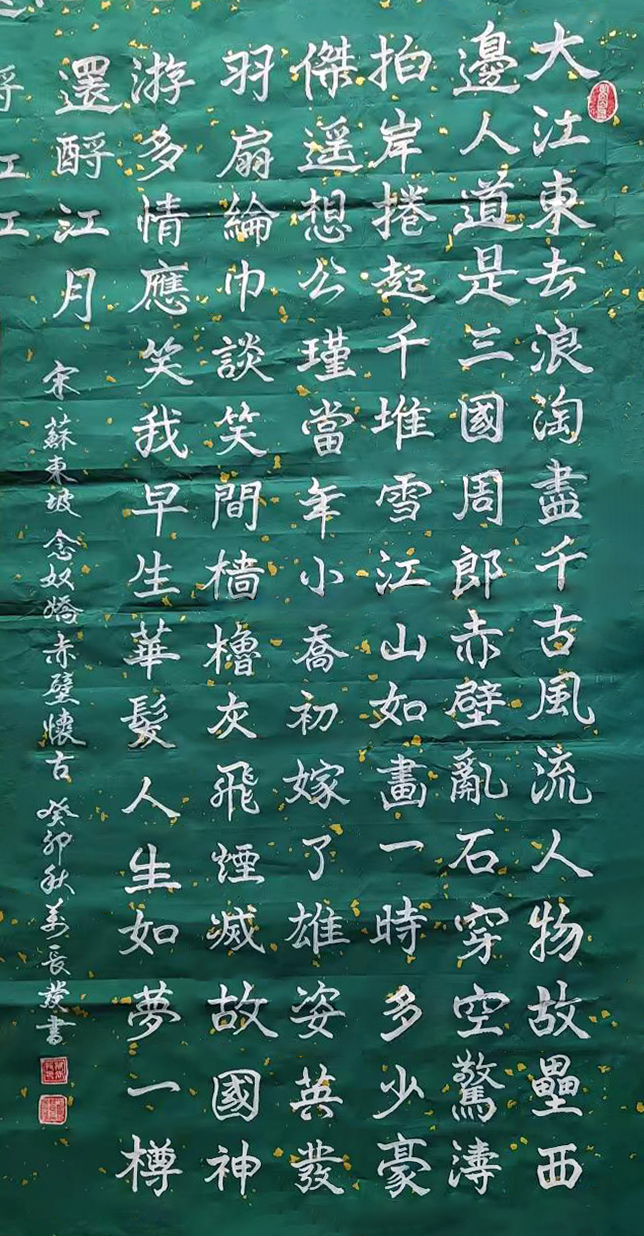 大江東去浪淘盡千古風流人物故壘西
邊人道是三國周郎赤壁亂石穿空驚濤
拍岸捲起千堆雪江山如畫一時多少豪
傑遥想公瑾當年小喬初嫁了雄姿英發
羽扇綸巾談笑間檣櫓灰飛煙滅故國神
游多情應笑我早生華髮人生如夢一樽
還酹江月
宋蘇東坡念奴嬌赤壁懷古 癸卯秋長發書